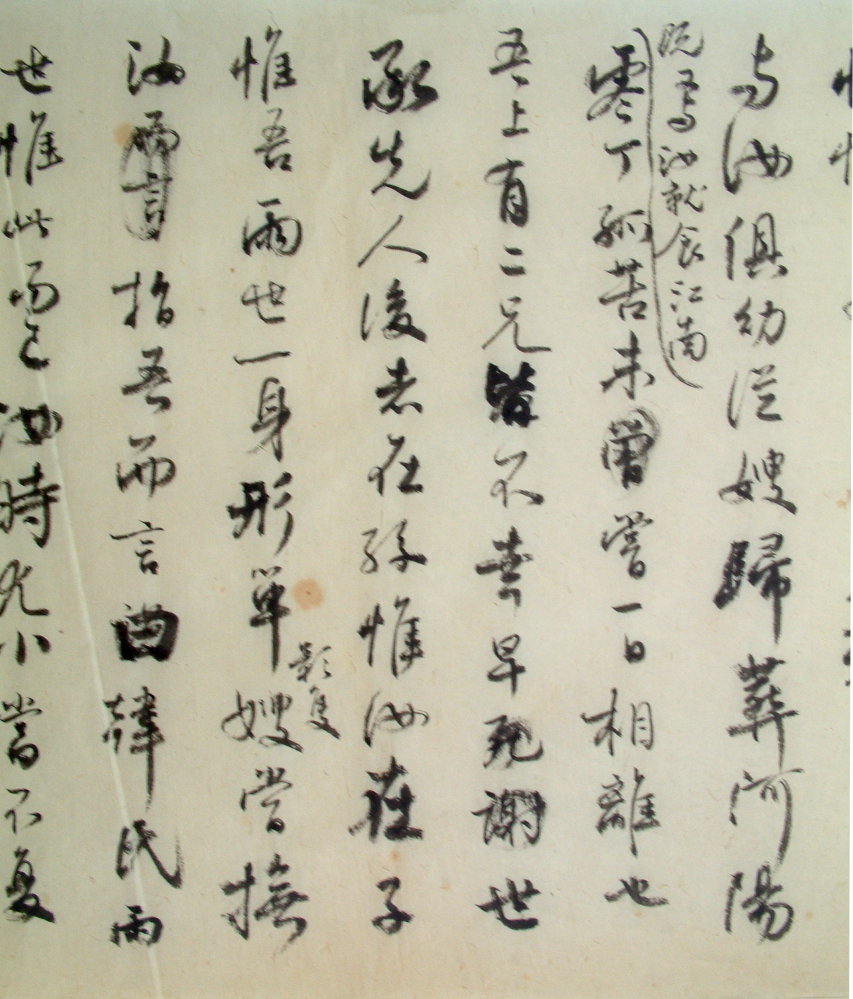 与汝俱幼從嫂歸葬河陽
既又与汝就食江南
零丁孤苦未嘗一日相離也
吾上有三兄皆不幸早死謝世
承先人後者在孫惟汝在子
惟吾兩世一身形單
影隻
嫂嘗撫
汝指吾而言曰韓氏兩
世惟此而已汝時尤小當不复